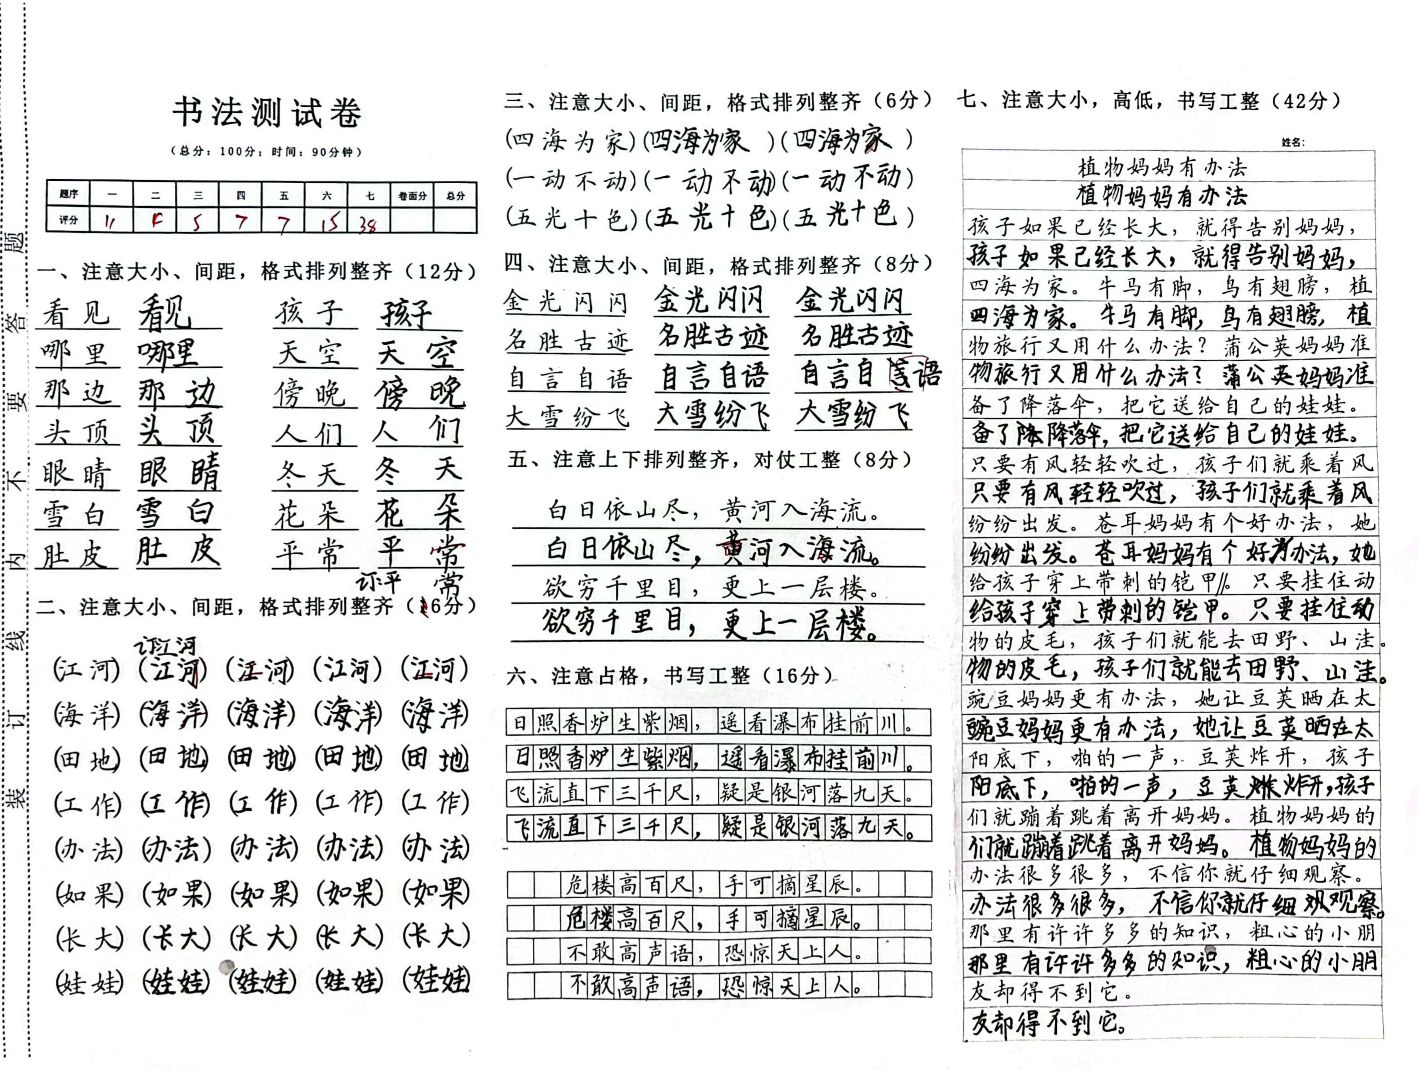 书法测试卷
（总分：100分；时间：90分钟）
题序 一 二 三 四 五 六 七 卷面分 总分
评分 11 5 7 7 15 38
一、注意大小、间距，格式排列整齐（12分）
看见 看见 孩子 孩子
哪里 哪里 天空 天空
那边 那边 傍晚 傍晚
头顶 头顶 人们 人们
眼睛 眼睛 冬天 冬天
雪白 雪白 花朵 花朵
肚皮 肚皮 平常 平常
订平常
二、注意大小、间距，格式排列整齐（16分）
订江河
（江河）（江河）（江河）（江河）（江河）
（海洋）（海洋）（海洋）（海洋）（海洋）
（田地）（田地）（田地）（田地）（田地）
（工作）（工作）（工作）（工作）（工作）
（办法）（办法）（办法）（办法）（办法）
（如果）（如果）（如果）（如果）（如果）
（长大）（长大）（长大）（长大）（长大）
（娃娃）（娃娃）（娃娃）（娃娃）（娃娃）
三、注意大小、间距，格式排列整齐（6分）
（四海为家）（四海为家）（四海为家）
（一动不动）（一动不动）（一动不动）
（五光十色）（五光十色）（五光十色）
四、注意大小、间距，格式排列整齐（8分）
金光闪闪 金光闪闪 金光闪闪
名胜古迹 名胜古迹 名胜古迹
自言自语 自言自语 自言自语
大雪纷飞 大雪纷飞 大雪纷飞
五、注意上下排列整齐，对仗工整（8分）
白日依山尽，黄河入海流。
白日依山尽，黄河入海流。
欲穷千里目，更上一层楼。
欲穷千里目，更上一层楼。
六、注意占格，书写工整（16分）
日照香炉生紫烟，遥看瀑布挂前川。
日照香炉生紫烟，遥看瀑布挂前川。
飞流直下三千尺，疑是银河落九天。
飞流直下三千尺，疑是银河落九天。
危楼高百尺，手可摘星辰。
危楼高百尺，手可摘星辰。
不敢高声语，恐惊天上人。
不敢高声语，恐惊天上人。
七、注意大小，高低，书写工整（42分）
姓名：
植物妈妈有办法
植物妈妈有办法
孩子如果已经长大，就得告别妈妈，
孩子如果已经长大，就得告别妈妈，
四海为家。牛马有脚，鸟有翅膀，植
四海为家。牛马有脚，鸟有翅膀，植
物旅行又用什么办法？蒲公英妈妈准
物旅行又用什么办法？蒲公英妈妈准
备了降落伞，把它送给自己的娃娃。
备了降落伞，把它送给自己的娃娃。
只要有风轻轻吹过，孩子们就乘着风
只要有风轻轻吹过，孩子们就乘着风
纷纷出发。苍耳妈妈有个好办法，她
纷纷出发。苍耳妈妈有个好办法，她
给孩子穿上带刺的铠甲。只要挂住动
给孩子穿上带刺的铠甲。只要挂住动
物的皮毛，孩子们就能去田野、山洼。
物的皮毛，孩子们就能去田野、山洼。
豌豆妈妈更有办法，她让豆荚晒在太
豌豆妈妈更有办法，她让豆荚晒在太
阳底下，啪的一声，豆荚炸开，孩子
阳底下，啪的一声，豆荚炸开，孩子
们就蹦着跳着离开妈妈。植物妈妈的
们就蹦着跳着离开妈妈。植物妈妈的
办法很多很多，不信你就仔细观察。
办法很多很多，不信你就仔细观察。
那里有许许多多的知识，粗心的小朋
那里有许许多多的知识，粗心的小朋
友却得不到它。
友却得不到它。
装 订 线 内 不 要 答 题